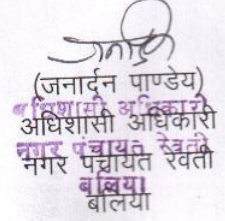 (जनार्दन पाण्डेय)
अधिशासी अधिकारी
अधिशासी अधिकारी
नगर पंचायत रेवती
नगर पंचायत रेवती
बलिया
बलिया